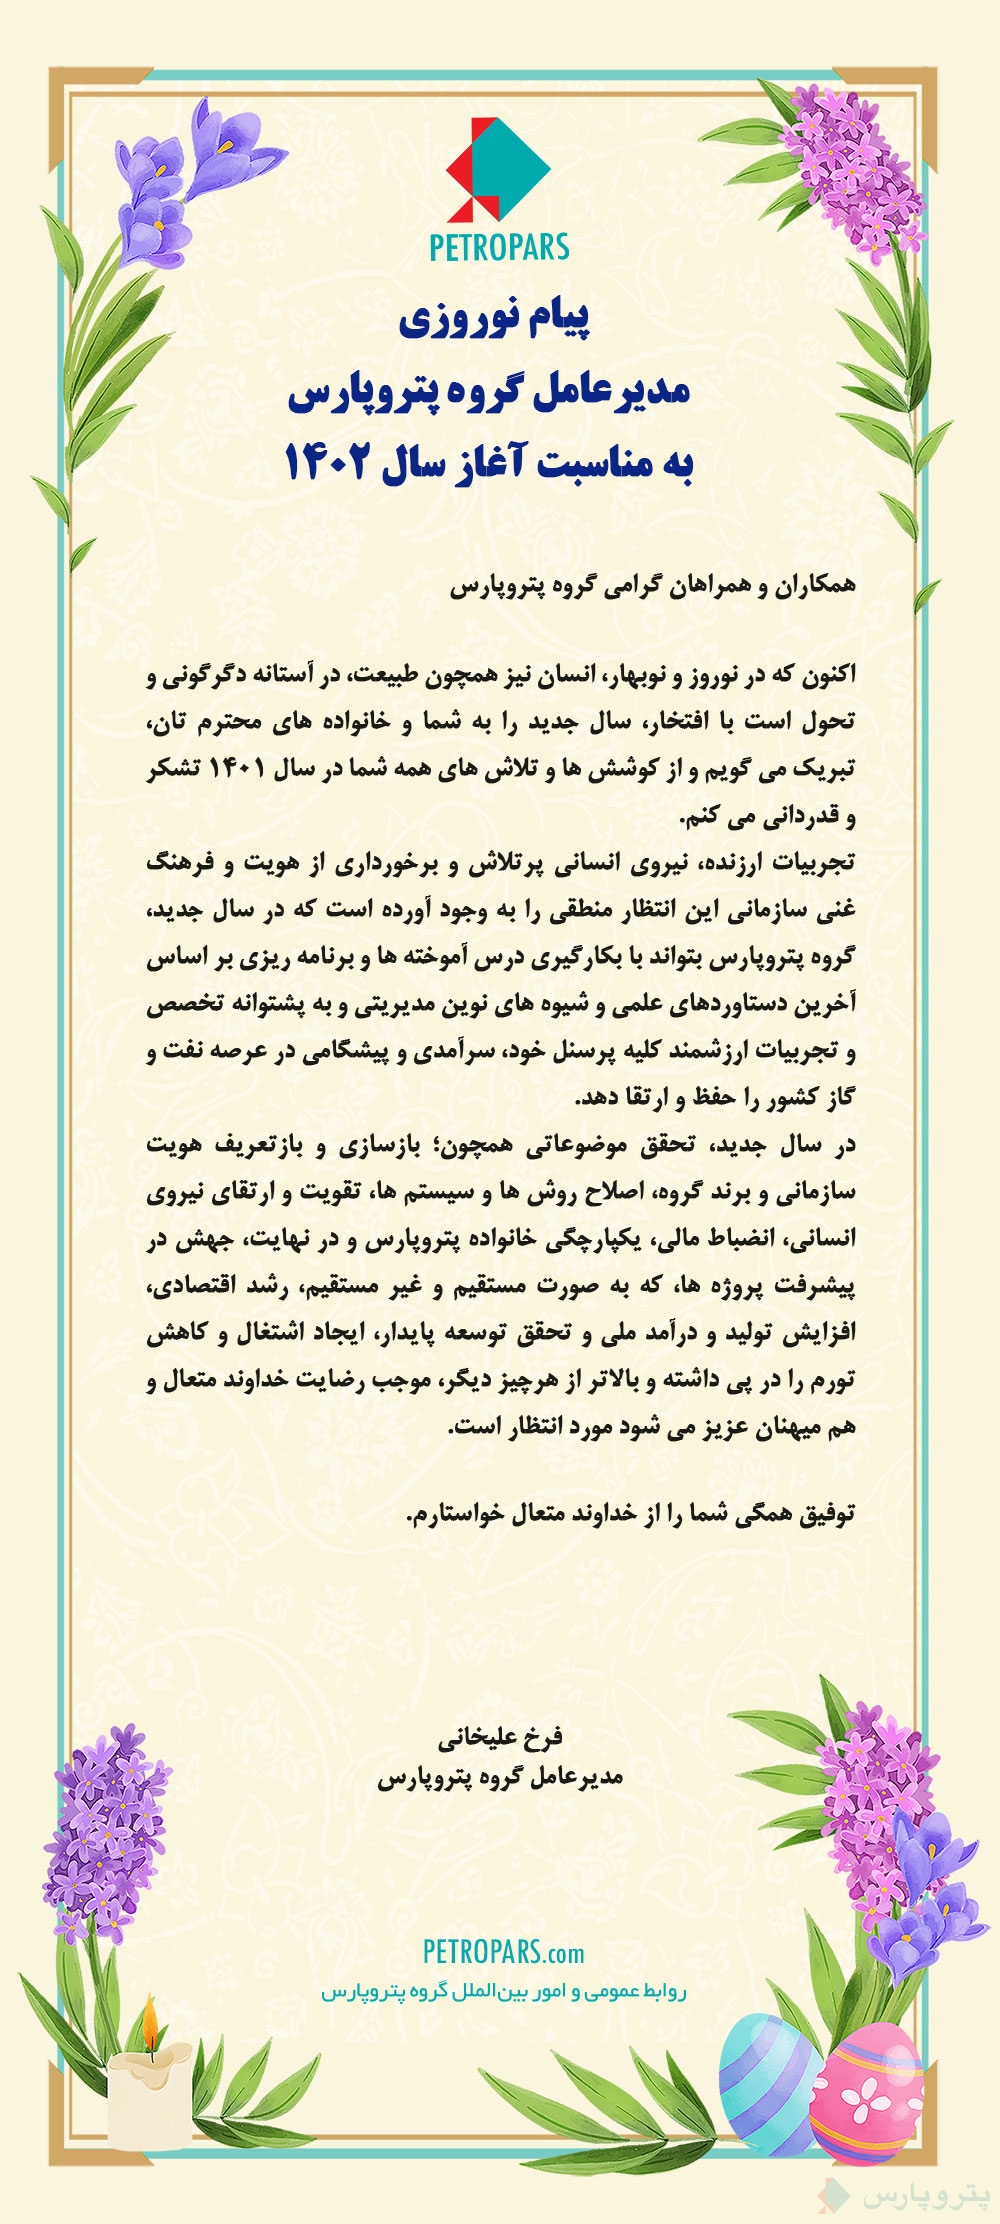 PETROPARS
پیام نوروزی
مدیرعامل گروه پتروپارس
به مناسبت آغاز سال ۱۴۰۲
همکاران و همراهان گرامی گروه پتروپارس
اکنون که در نوروز و نوبهار، انسان نیز همچون طبیعت، در آستانه دگرگونی و
تحول است با افتخار، سال جدید را به شما و خانواده های محترم تان،
تبریک می گویم و از کوشش ها و تلاش های همه شما در سال ۱۴۰۱ تشکر
و قدردانی می کنم.
تجربیات ارزنده، نیروی انسانی پرتلاش و برخورداری از هویت و فرهنگ
غنی سازمانی این انتظار منطقی را به وجود آورده است که در سال جدید،
گروه پتروپارس بتواند با بکارگیری درس آموخته ها و برنامه ریزی بر اساس
آخرین دستاوردهای علمی و شیوه های نوین مدیریتی و به پشتوانه تخصص
و تجربیات ارزشمند کلیه پرسنل خود، سرآمدی و پیشگامی در عرصه نفت و
گاز کشور را حفظ و ارتقا دهد.
در سال جدید، تحقق موضوعاتی همچون؛ بازسازی و بازتعریف هویت
سازمانی و برند گروه، اصلاح روش ها و سیستم ها، تقویت و ارتقای نیروی
انسانی، انضباط مالی، یکپارچگی خانواده پتروپارس و در نهایت، جهش در
پیشرفت پروژه ها، که به صورت مستقیم و غیر مستقیم، رشد اقتصادی،
افزایش تولید و درآمد ملی و تحقق توسعه پایدار، ایجاد اشتغال و کاهش
تورم را در پی داشته و بالاتر از هرچیز دیگر، موجب رضایت خداوند متعال و
هم میهنان عزیز می شود مورد انتظار است.
توفیق همگی شما را از خداوند متعال خواستارم.
فرخ علیخانی
مدیرعامل گروه پتروپارس
PETROPARS.com
روابط عمومی و امور بین‌الملل گروه پتروپارس
پتروپارس